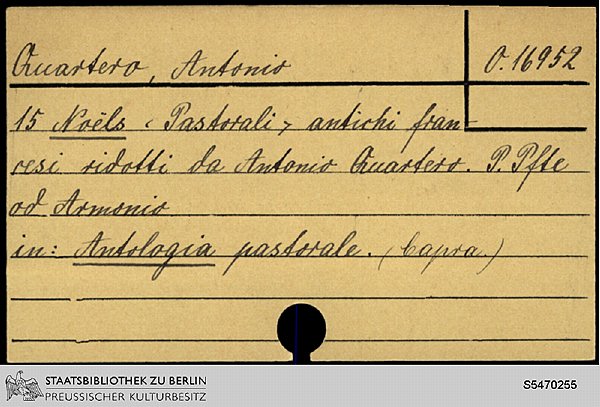 Quartero, Antonio
O. 16952
15 Noëls < Pastorali > antichi fran-
cesi ridotti da Antonio Quartero. P. Pfte
od Armonio
in: Antologia pastorale. (Capra.)
STAATSBIBLIOTHEK ZU BERLIN
PREUSSISCHER KULTURBESITZ
S5470255